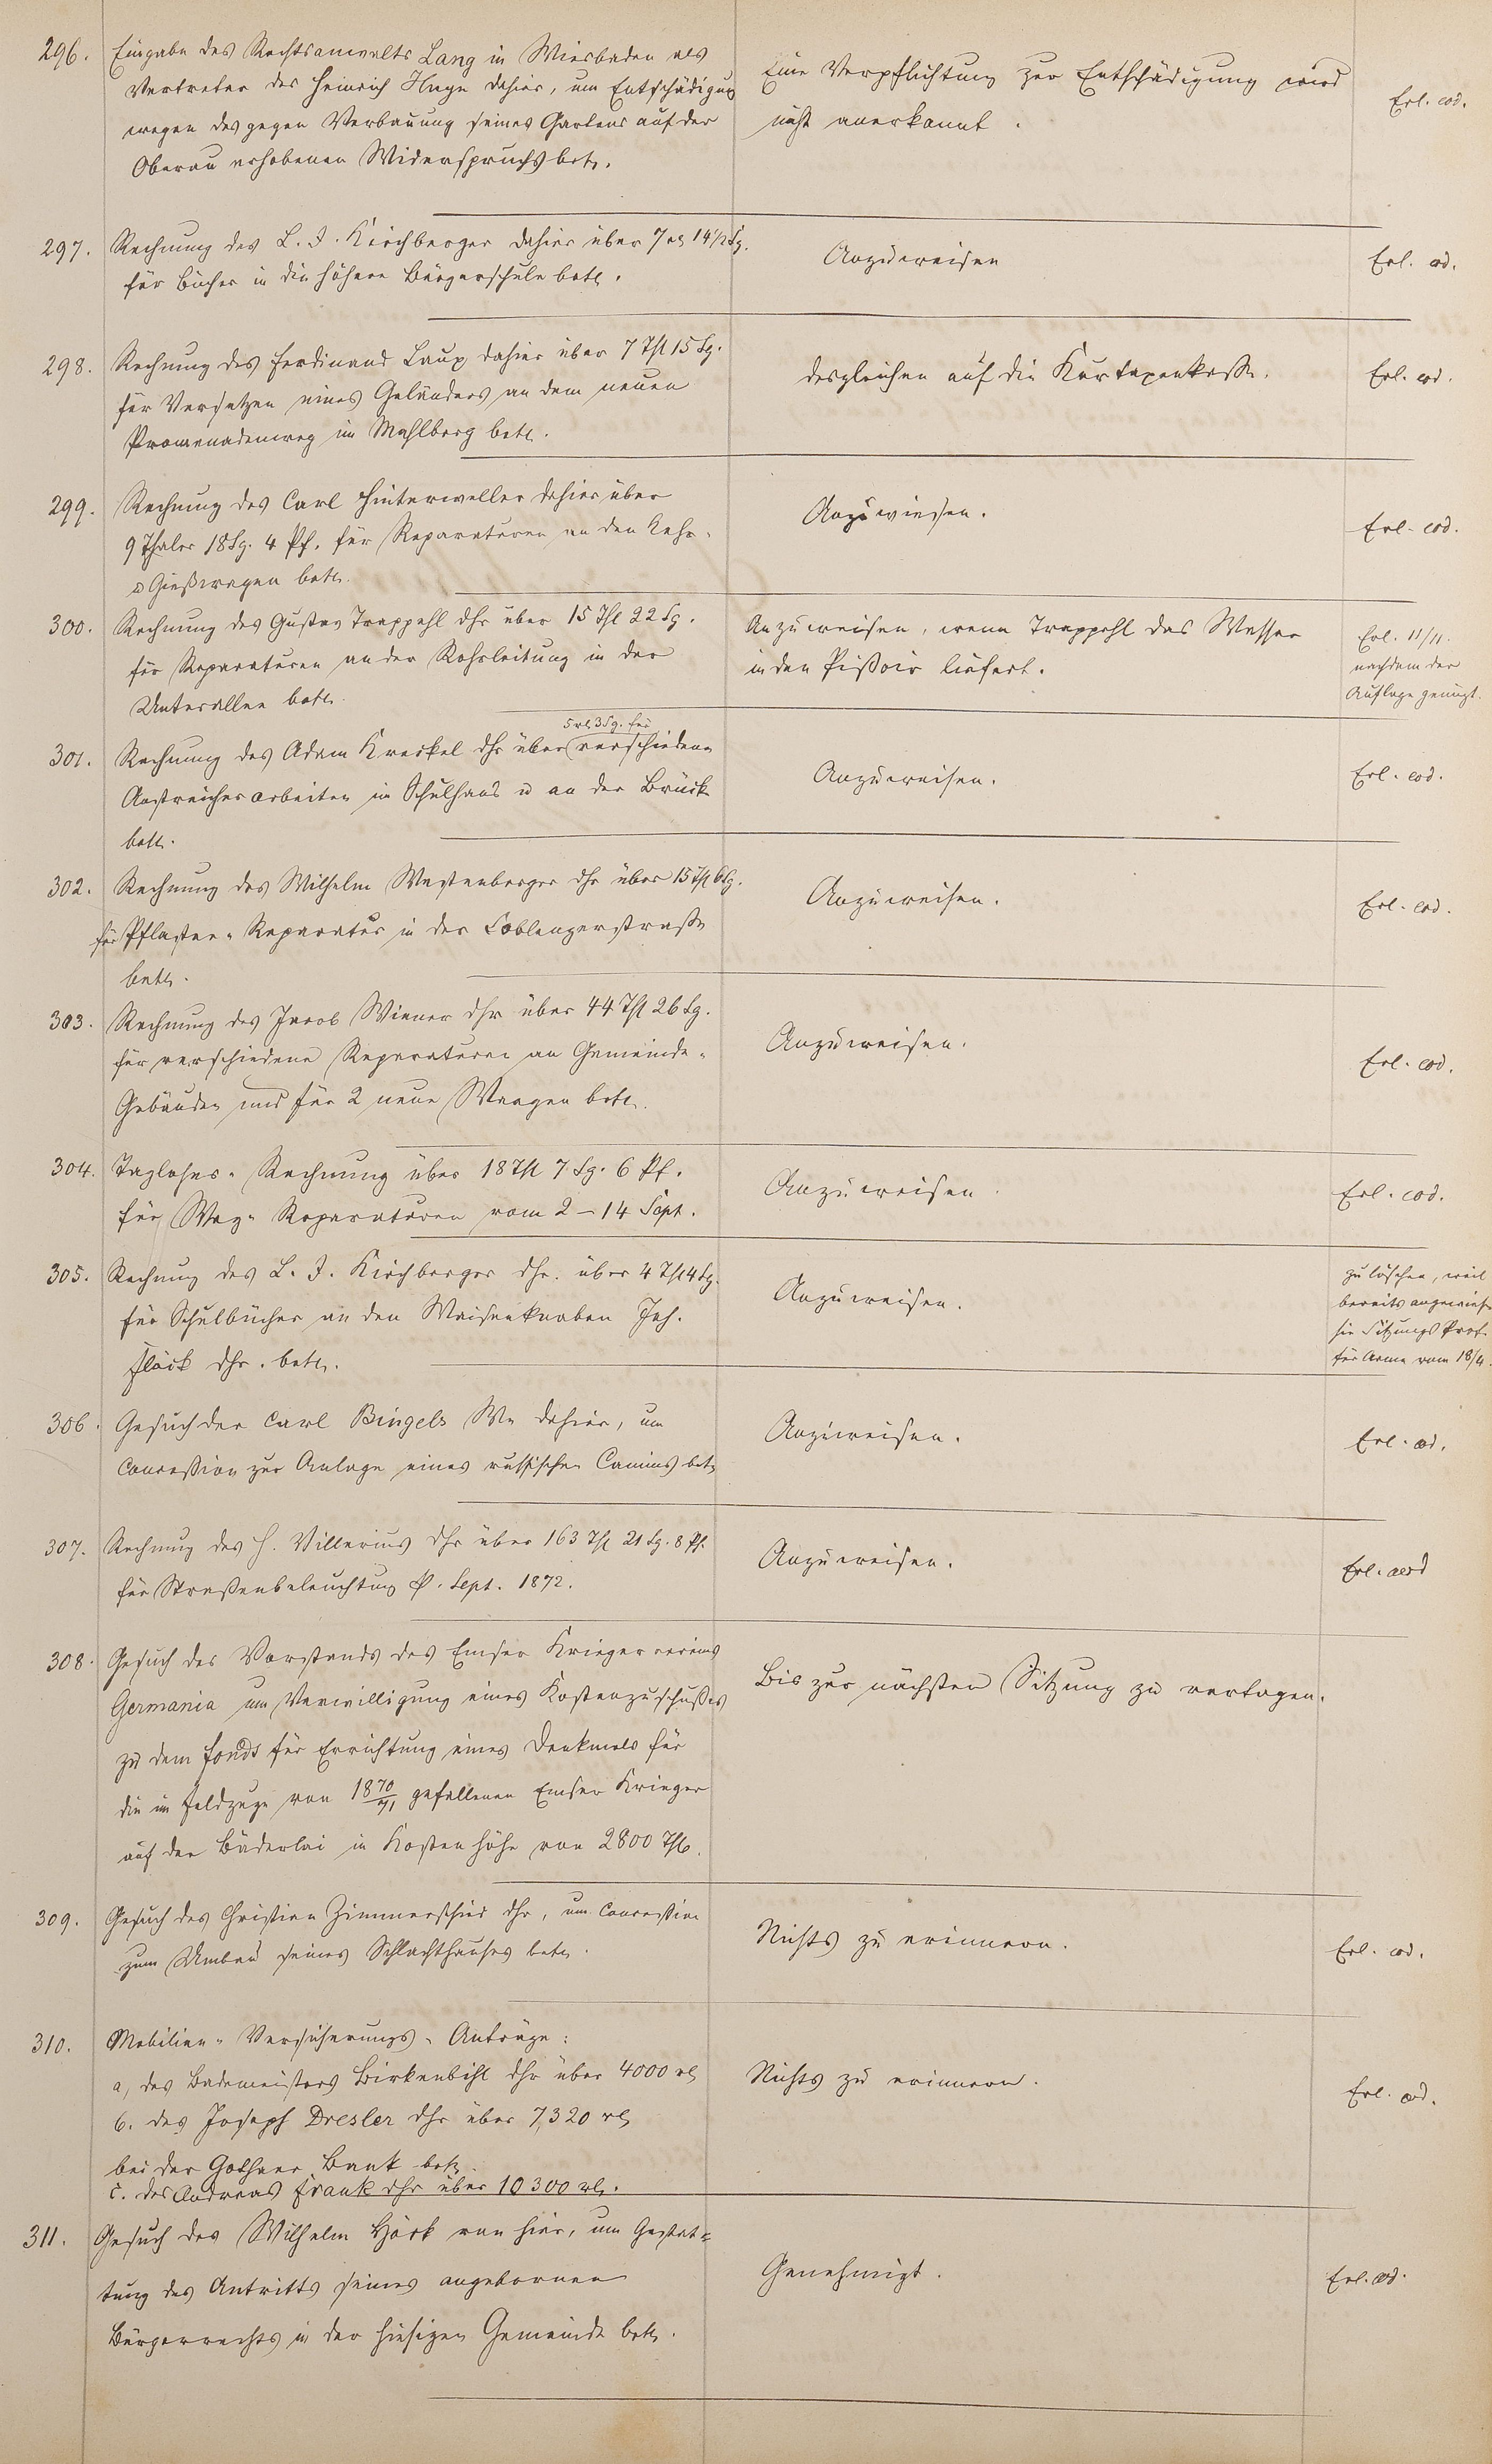 296. Eingabe des Rechtsanwalts Lang in Wiesbaden als
Vertreter des Heinrich Haye dahier, um Entschädigung
wegen des gegen Verbauung seines Gartens auf der
Oberau erhobenen Widerspruchs betr.
Eine Verpflichtung zur Entschädigung wird
nicht anerkannt.
Erl. eod.
297. Rechnung des L. J. Kirchberger dahier über 7 rl 14 1/2 Sg.
für Bücher in die höhere Bürgerschule betr.
Anzuweisen
Erl. eod.
298. Rechnung des Ferdinand Laux dahier über 7 Thl 15 Sg.
für Versetzen eines Geländers an dem neuen
Promenadenweg im Mahlberg betr.
desgleichen auf die Kurtaxenkasse.
Erl. eod.
299. Rechnung des Carl Hinterweller dahier über
9 Thaler 18 Sg. 4 Pf. für Reparaturen an den Kehr-
u Gießwagen betr.
Anzuweisen.
Erl. eod.
300. Rechnung des Gustav Trappehl dhr über 15 Thl 22 Sg.
für Reparaturen an der Rohrleitung in der
Unterallee betr.
Anzuweisen, wenn Trappehl das Wasser
in den Pißoir liefert.
Erl. 11/11.
nachdem der
Auflage genügt.
301. Rechnung des Adam Kreckel dhr über verschiedene
5 rl. 3 Sg. für
Anstreicherarbeiten im Schulhaus u an der Brücke
betr.
Anzuweisen.
Erl. eod.
302. Rechnung des Wilhelm Westenberger dhr über 15 Thl 6 Sg.
für Pflaster-Reparatur in der Coblenzerstrasse
betr.
Anzuweisen.
Erl. eod.
303. Rechnung des Jacob Wiener dhr über 44 Thl 26 Sg.
für verschiedene Reparaturen an Gemeinde-
Gebäuden und für 2 neue Waagen betr.
Anzuweisen.
Erl. eod.
304. Taglohns-Rechnung über 18 Thl 7 Sg. 6 Pf.
für Weg-Reparaturen vom 2–14 Sept.
Anzuweisen
Erl. eod.
305. Rechnung des L. J. Kirchberger dhr. über 4 Thl 4 Sg.
für Schulbücher an den Waisenknaben Joh.
Flöck dhr. betr.
Anzuweisen.
zu löschen, weil
bereits angewiesen
sie Sitzungs Prot.
für Arme vom 18/4.
306. Gesuch der Carl Bingels We dahier, um
Concession zur Anlage eines russischen Camins betr
Anzuweisen.
Erl. eod.
307. Rechnung des H. Villerius dhr über 163 Thl 21 Sg. 8 Pf.
für Straßenbeleuchtung p. Sept. 1872.
Anzuweisen.
Erl. eod
308. Gesuch des Vorstands des Emser Kriegervereins
Germania um Verwilligung eines Kostenzuschußes
zu dem Fonds für Errichtung eines Denkmals für
die im Feldzuge von 1870/71 gefallenen Emser Krieger
auf der Bäderlei in Kostenhöhe von 2800 Thlr.
Bis zur nächsten Sitzung zu vertagen.
309. Gesuch des Christian Zimmerschied dhr, um Concession
zum Umbau seines Schlachthauses betr.
Nichts zu erinnern.
Erl. eod.
310. Mobilien-Versicherungs-Anträge:
a, des Bademeisters Birkenbihl dhr über 4000 rl
b. des Joseph Dresler dhr über 7,320 rl
bei der Gothaer Bank betr
c. des Andreas Frank dhr über 10300 rl.
Nichts zu erinnern.
Erl. eod.
311. Gesuch des Wilhelm Höck von hier, um Gestat-
tung des Antritts seines angebornen
Bürgerrechts in der hiesigen Gemeinde betr.
Genehmigt.
Erl. eod.